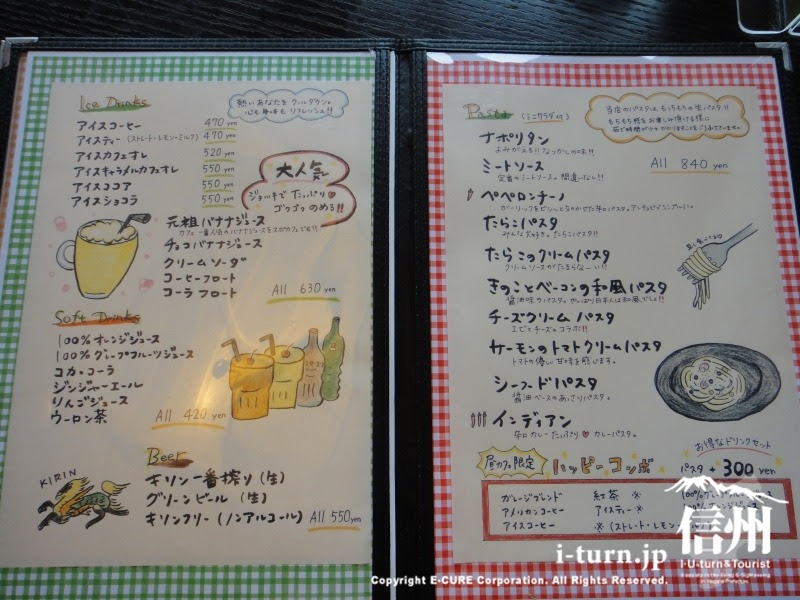 Ice Drinks
熱いあなたを クールダウン。
心も身体も リフレッシュ!!
アイスコーヒー 470 yen
アイスティー (ストレート・レモン・ミルク) 470 yen
アイスカフェオレ 520 yen
アイスキャラメルカフェオレ 550 yen
アイスココア 550 yen
アイスショコラ 550 yen
大人気
ジョッキで たっぷり
ゴクゴク のめる!!
元祖バナナジュース
チョコバナナジュース
クリームソーダ
コーヒーフロート
コーラフロート
All 630 yen
Soft Drinks
100%オレンジジュース
100%グレープフルーツジュース
コカ・コーラ
ジンジャーエール
りんごジュース
ウーロン茶
All 420 yen
Beer
KIRIN
キリン一番搾り (生)
グリーンビール (生)
キリンフリー (ノンアルコール) All 550 yen
Pasta (ミニサラダ付)
当店のパスタは もっちもちの生パスタ!!
ナポリタン
よみがえる!! なつかしの味!!
All 840 yen
ミートソース
定番のミートソース。間違いなし!!
ペペロンチーノ
たらこパスタ
みんな大好き。たらこパスタ!!
たらこのクリームパスタ
クリームソースがたまらなーい!!
きのことベーコンの和風パスタ
醤油味のパスタ。やっぱり日本人は和風でしょ!!
チーズクリームパスタ
エビとチーズのコラボ!!
サーモンのトマトクリームパスタ
トマトの優しい甘味を感じます。
シーフードパスタ
醤油ベースのあっさりパスタ。
インディアン
辛口カレーたっぷり カレーパスタ。
お得なドリンクセット
昼カフェ限定 ハッピーコンボ パスタ + 300 yen
ガレージブレンド 紅茶 ※
アメリカンコーヒー アイスティー ※
アイスコーヒー ※(ストレート・レモン
i-turn.jp
信州
I・U-turn&Tourist
Copyright E-CURE Corporation. All Rights Reserved.